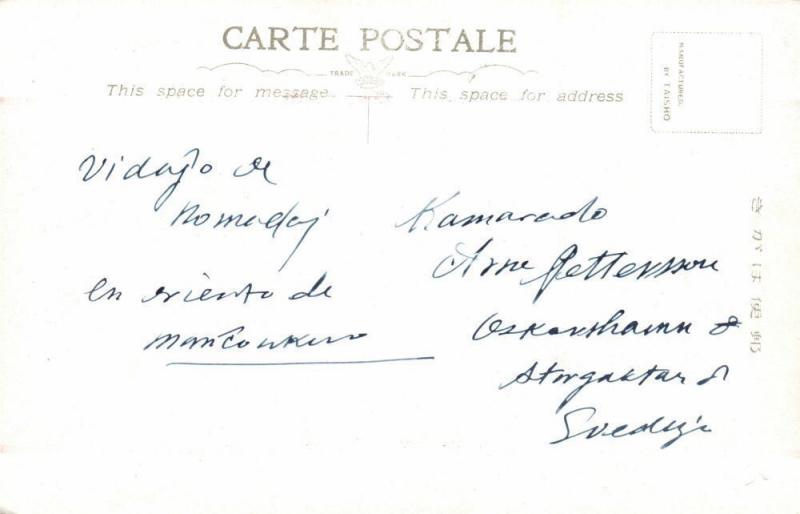 CARTE POSTALE
TRADE MARK
This space for message.
This space for address
MANUFACTURED.
BY TAISHO
きがは便郵
Vidaĵo de
nomadoj
en oriento de
Manĉoukuo
Kamarado
Arne Pettersson
Oskarshamn
Storgatan
Svedujo